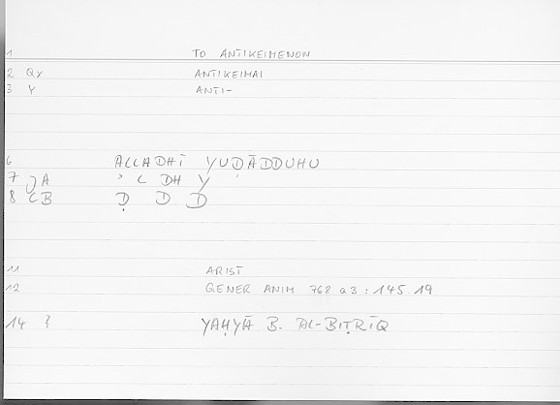 1 TO ANTIKEIMENON
2 QY ANTIKEIMAI
3 Y ANTI-
6 ALLADHĪ YUḌĀDDUHU
7 A ʾ L DH Y
8 CB Ḍ D D
11 ARIST
12 GENER ANIM 768 a3 : 145 19
14 YAḤYĀ B. AL-BIṬRĪQ